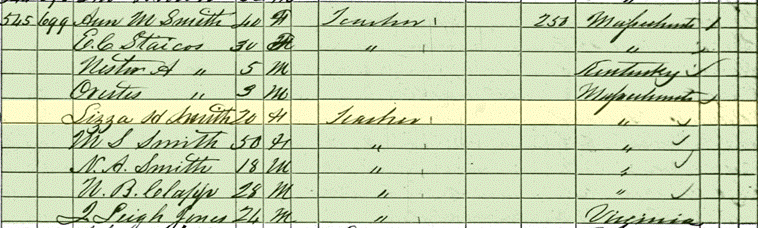 545 699 Ann M Smith 40 F Teacher 250 Massachusetts
E. C. Staicos 30 F "
Nestor A " 5 M Kentucky
Orestes " 3 M Massachusetts
Lizza H Smith 20 F Teacher "
M S Smith 50 F " "
N. A. Smith 18 M " "
W. B. Clapp 28 M " "
J Leigh Jones 24 M " Virginia